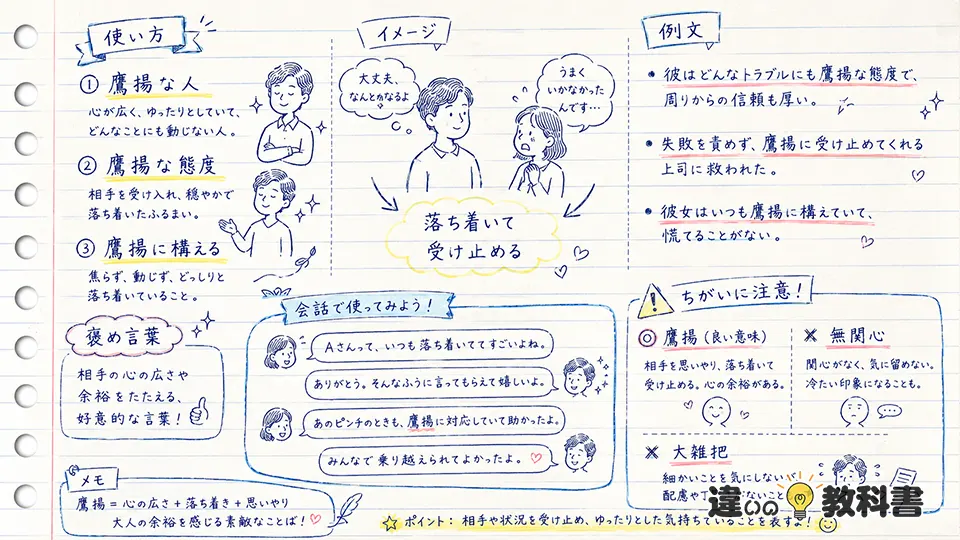 使い方
① 鷹揚な人
心が広く、ゆったりとしていて、
どんなことにも動じない人。
② 鷹揚な態度
相手を受け入れ、穏やかで
落ち着いたふるまい。
③ 鷹揚に構える
焦らず、動じず、どっしりと
落ち着いていること。
褒め言葉
相手の心の広さや
余裕をたたえる、
好意的な言葉!
メモ
鷹揚=心の広さ+落ち着き+思いやり
大人の余裕を感じる素敵なことば!
イメージ
大丈夫、
なんとかなるよ
うまく
いかなかった
んです…
落ち着いて
受け止める
会話で使ってみよう!
Aさんって、いつも落ち着いててすごいよね。
ありがとう。そんなふうに言ってもらえて嬉しいよ。
あのピンチのときも、鷹揚に対応していて助かったよ。
みんなで乗り越えられてよかったよ。
例文
• 彼はどんなトラブルにも鷹揚な態度で、
周りからの信頼も厚い。
• 失敗を責めず、鷹揚に受け止めてくれる
上司に救われた。
• 彼女はいつも鷹揚に構えていて、
慌てることがない。
ちがいに注意!
◎ 鷹揚(良い意味)
相手を思いやり、落ち着いて
受け止める。心の余裕がある。
× 無関心
関心がなく、気に留めない。
冷たい印象になることも。
× 大雑把
細かいことを気にしない
配慮や
こと
違いの教科書
ポイント: 相手や状況を受け止め、ゆったりとした気持ちでいることを表すよ!